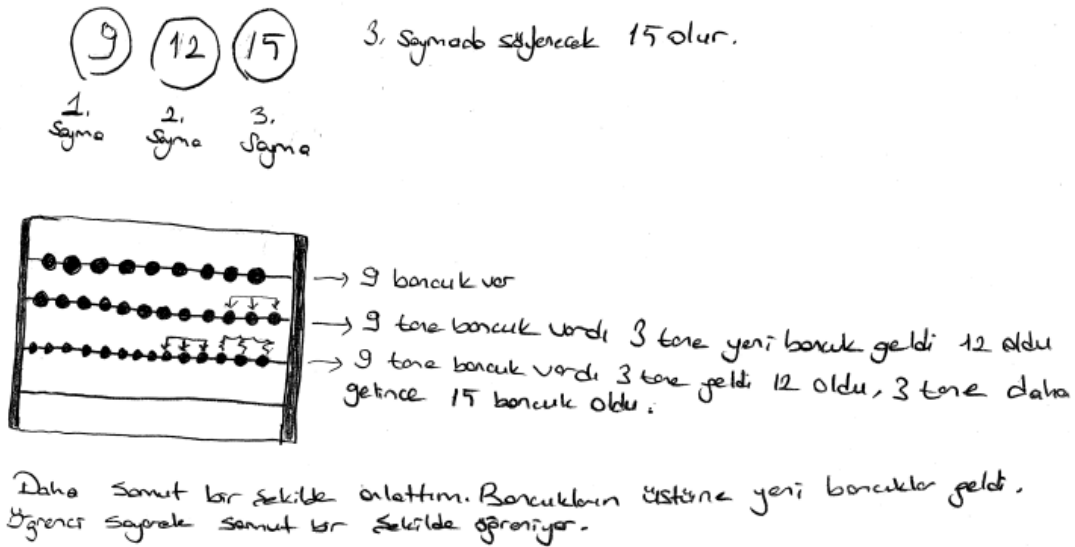 9 12 15 3. Saymada söylenecek 15 olur.
1. 2. 3.
Sayma Sayma Sayma
→ 9 boncuk var
→ 9 tane boncuk vardı 3 tane yeni boncuk geldi 12 oldu
→ 9 tane boncuk vardı 3 tane geldi 12 oldu, 3 tane daha
gelince 15 boncuk oldu.
Daha somut bir şekilde anlattım. Boncukların üstüne yeni boncuklar geldi.
Öğrenci sayarak somut bir şekilde öğreniyor.